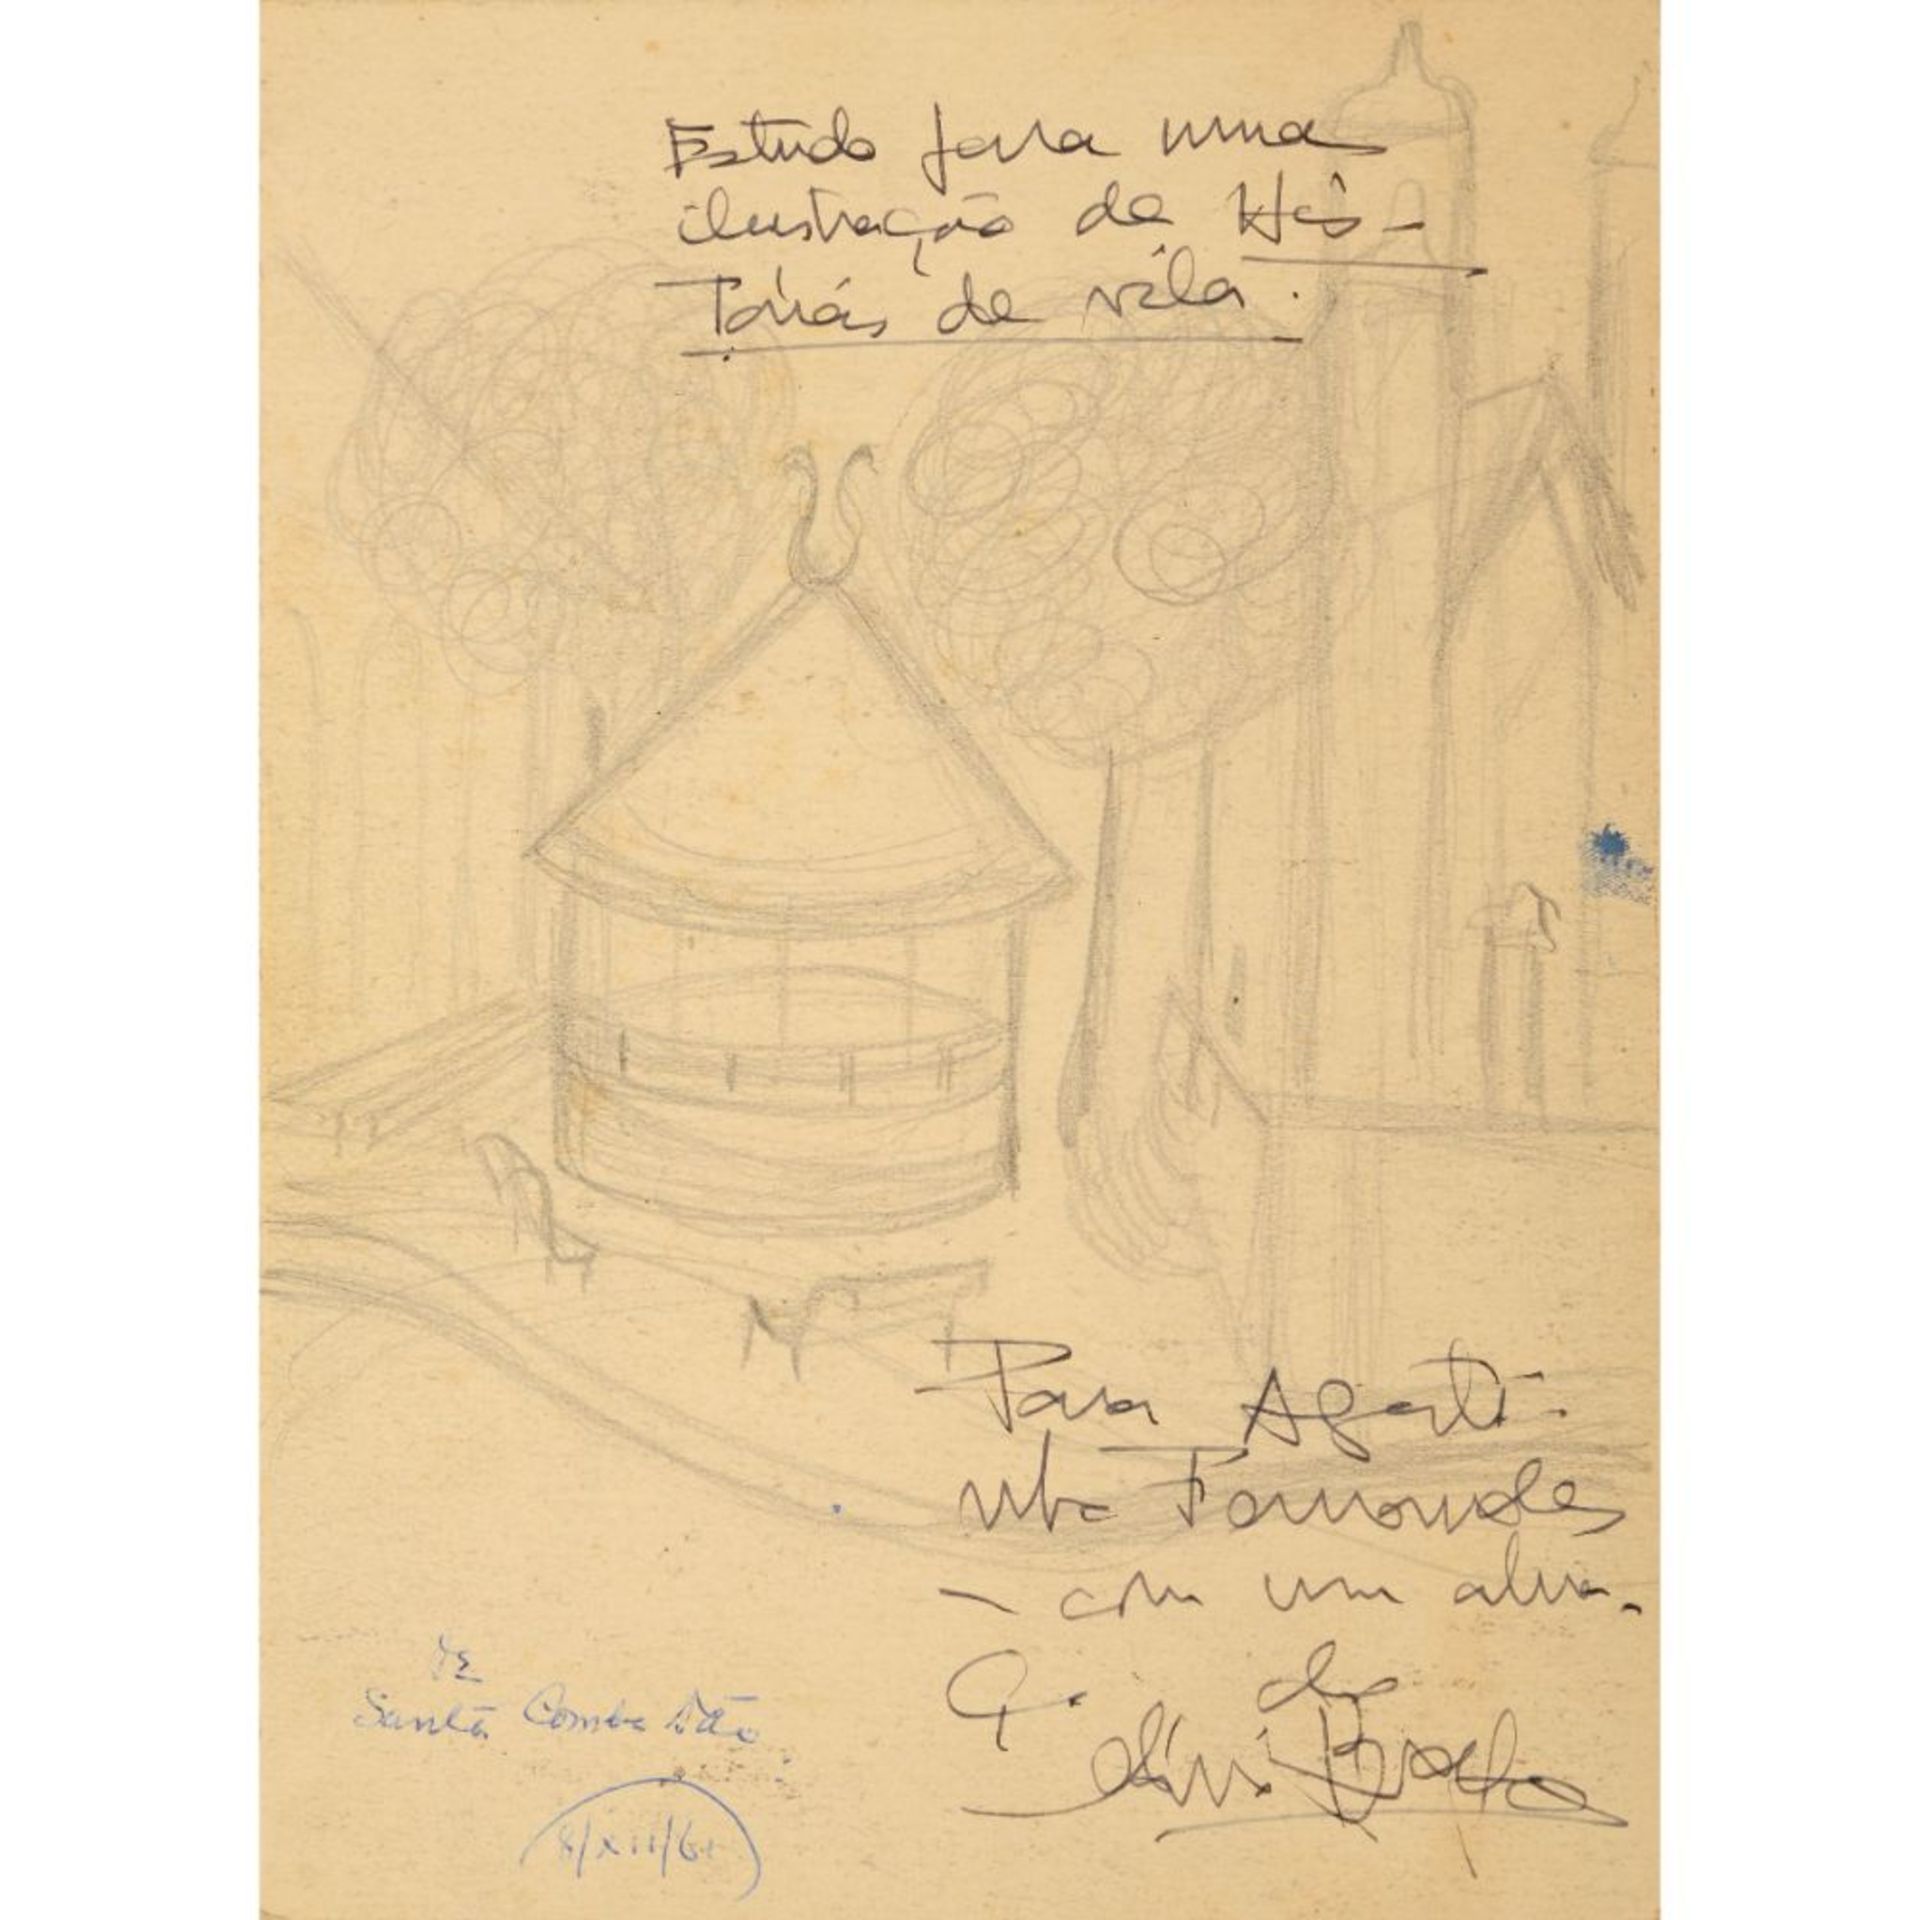 Estudo para uma
ilustração de His-
tórias de vila.
Para Agosti-
nho Fernandes
- com um abra-
ço do
de
Santa Comba Dão.
8/XII/61